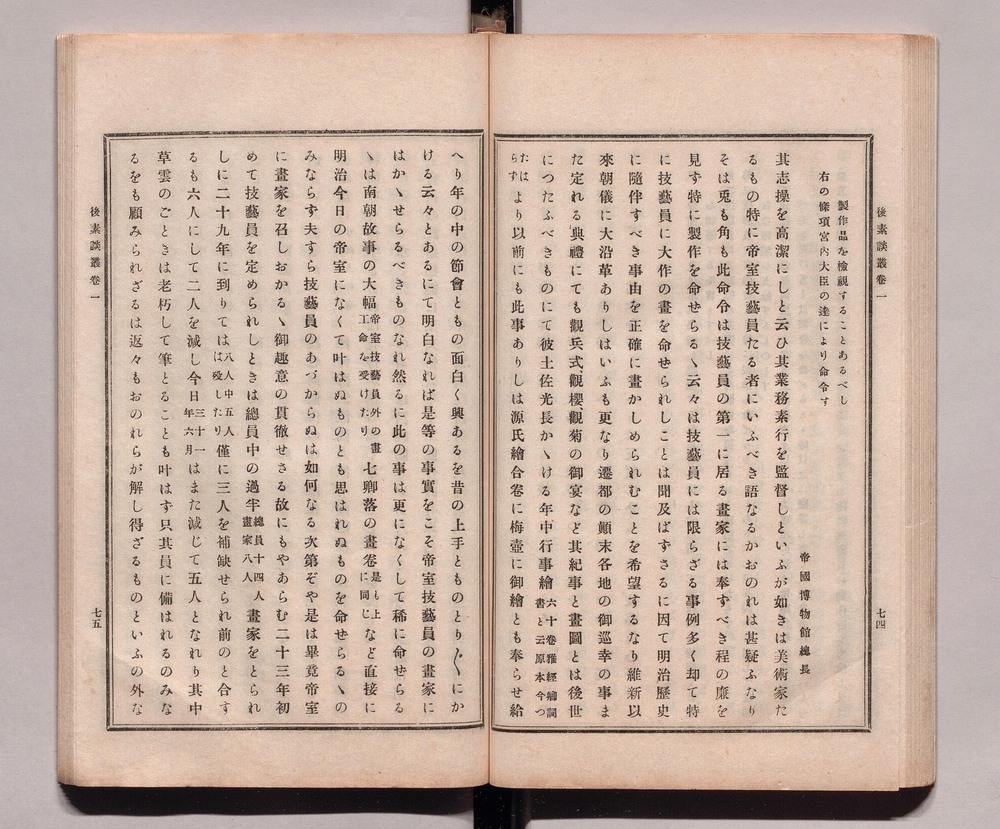 後素談叢卷一
七四
製作品を檢視することあるべし
右の條項宮內大臣の達により命令す
帝國博物館總長
其志操を高潔にしと云ひ其業務素行を監督しといふが如きは美術家た
るもの特に帝室技藝員たる者にいふべき語なるかおのれは甚疑ふなり
そは兎も角も此命令は技藝員の第一に居る畫家には奉ずべき程の廉を
見す特に製作を命せらるゝ云々は技藝員には限らざる事例多く却て特
に技藝員に大作の畫を命せられしことは聞及ばずさるに因て明治歷史
に隨伴すべき事由を正確に畫かしめられむことを希望するなり維新以
來朝儀に大沿革ありしはいふも更なり遷都の顚末各地の御巡幸の事ま
た定れる典禮にても觀兵式觀櫻、觀菊の御宴など其紀事と畫圖とは後世
につたふべきものにて彼土佐光長かゝける年中行事繪六十卷雅經卿詞書と云原本今つ
たはらず より以前にも此事ありしは源氏繪合卷に梅壺に御繪とも奉らせ給
へり年の中の節會ともの面白く興あるを昔の上手とものとり〳〵にか
ける云々とあるにて明白なれば是等の事實をこそ帝室技藝員の畫家に
はかゝせらるべきものなれ然るに此の事は更になくして稀に命せらる
ゝは南朝故事の大幅帝室技藝員外の畫工命を受けたり七卿落の畫卷是も上に同じなど直接に
明治今日の帝室になくて叶はぬものとも思はれぬものを命せらるゝの
みならず夫すら技藝員のあづからぬは如何なる次第ぞや是は畢竟帝室
に畫家を召しおかるゝ御趣意の貫徹せさる故にもやあらむ二十三年初
めて技藝員を定められしときは總員中の過半總員十四人畫家八人畫家をとられ
しに二十九年に到りては八人中五人は歿したり僅に三人を補缺せられ前のと合す
るも六人にして二人を減し今日三十一年六月はまた減じて五人となれり其中
草雲のごときは老朽して筆とることも叶はず只其員に備はれるのみな
るをも顧みられざるは返々もおのれらが解し得ざるものといふの外な
後素談叢卷一
七五